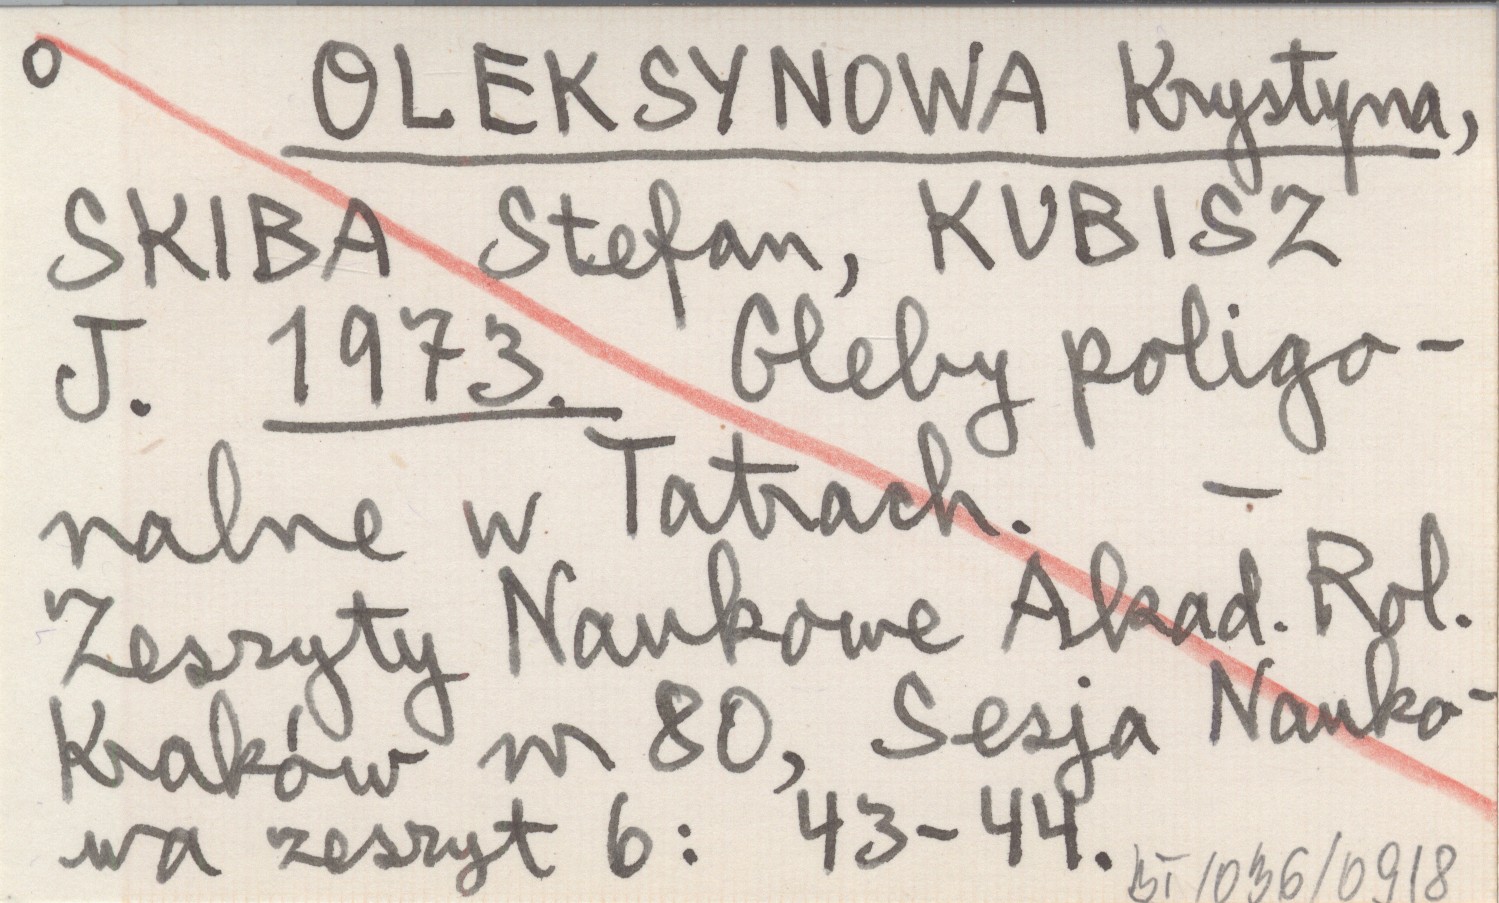 o OLEKSYNOWA Krystyna,
SKIBA Stefan, KUBISZ
J. 1973. Gleby poligo-
nalne w Tatrach. –
Zeszyty Naukowe Akad. Rol.
Kraków nr 80, Sesja Nauko-
wa zeszyt 6: 43-44.
BT/036/0918